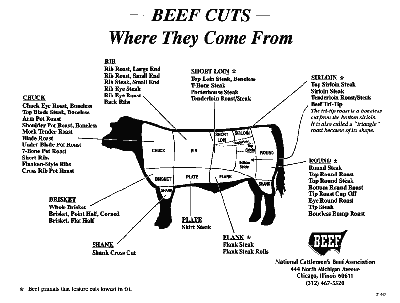 BEEF CUTS
Where They Come From
RIB
Rib Roast, Large End
Rib Roast, Small End
Rib Steak, Small End
Rib Eye Steak
Rib Eye Roast
Back Ribs
SHORT LOIN *
Top Loin Steak, Boneless
T-Bone Steak
Porterhouse Steak
Tenderloin Roast/Steak
SIRLOIN *
Top Sirloin Steak
Sirloin Steak
Tenderloin Roast/Steak
Beef Tri-Tip
The tri-tip roast is a boneless
cut from the bottom sirloin.
It is also called a "triangle"
roast because of its shape.
CHUCK
Chuck Eye Roast, Boneless
Top Blade Steak, Boneless
Arm Pot Roast
Shoulder Pot Roast, Boneless
Mock Tender Roast
Blade Roast
Under Blade Pot Roast
7-Bone Pot Roast
Short Ribs
Flanken-Style Ribs
Cross Rib Pot Roast
CHUCK
RIB
SHORT
LOIN
SIRLOIN
ROUND
BRISKET
PLATE
FLANK
SHANK
SHANK
ROUND *
Round Steak
Top Round Roast
Top Round Steak
Bottom Round Roast
Tip Roast Cap Off
Eye Round Roast
Tip Steak
Boneless Rump Roast
BRISKET
Whole Brisket
Brisket, Point Half, Corned
Brisket, Flat Half
SHANK
Shank Cross Cut
PLATE
Skirt Steak
FLANK *
Flank Steak
Flank Steak Rolls
BEEF
National Cattlemen's Beef Association
444 North Michigan Avenue
Chicago, Illinois 60611
(312) 467-5520
* Beef primals that feature cuts lowest in fat.